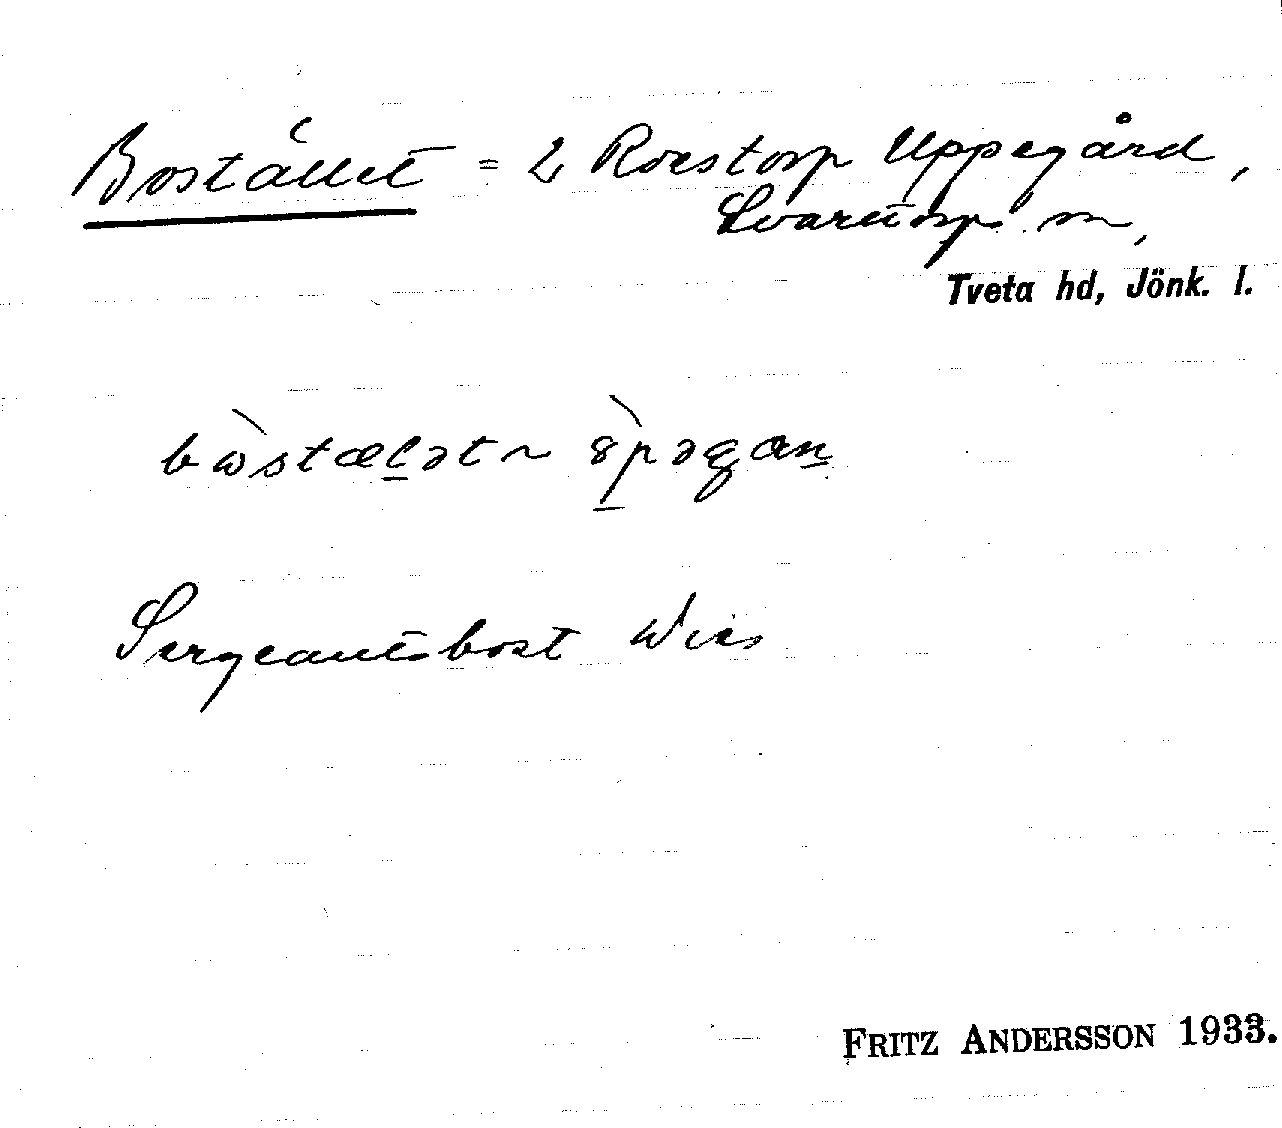 Bostället = 2 Roestorp Uppegård,
Svartorp sn,
Tveta hd, Jönk. l.
bɷ̀stæl̲ət ~ 8̀p̲əgan̲
Sergeantsbost Wies
FRITZ ANDERSSON 1933.